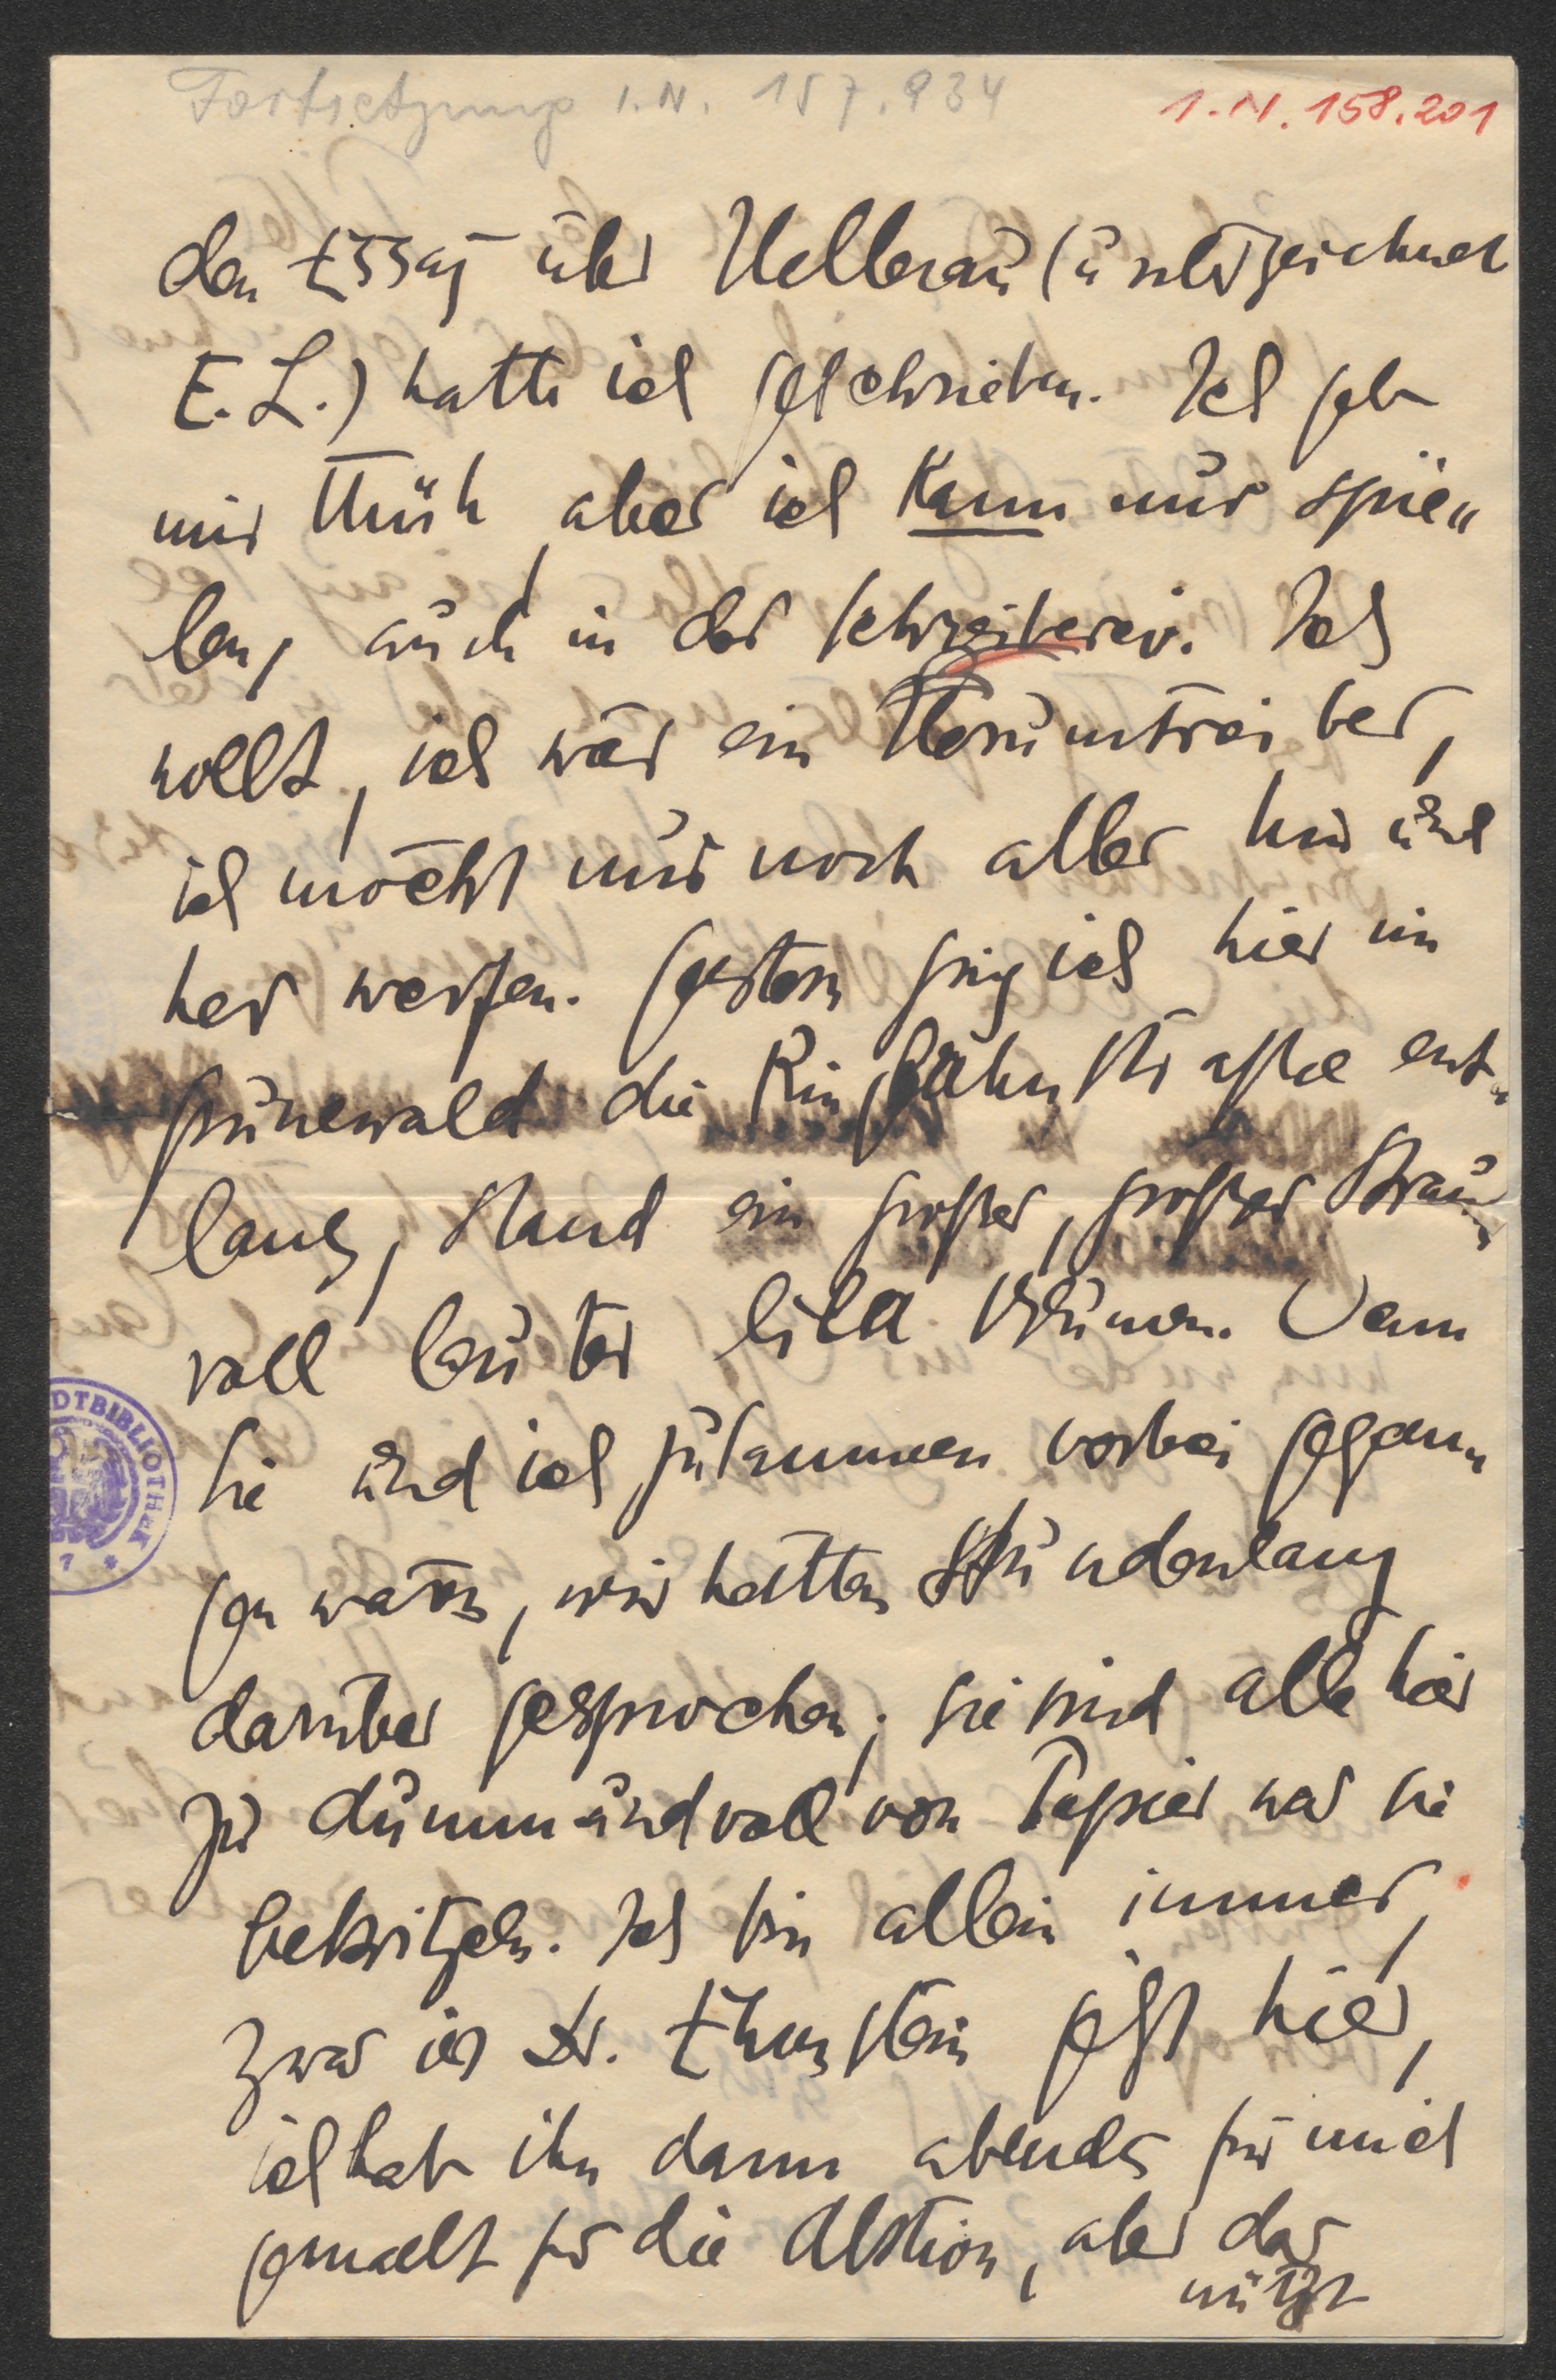 Fortsetzung I.N. 157.934
I.N. 158.201
den Essay über Hellerau (unterzeichnet
E.L.) hatte ich geschrieben. Ich geb
mir Müh, aber ich kann nur spie„
len, auch in der Schreiberei. Ich
wollt, ich wär ein Herumtreiber,
ich möcht nur noch alles hin und
her werfen. Gestern ging ich hier im
Grünewald die Ringbahnstraße ent„
lang, stand ein großer, großer Strauch
voll lauter lila Blumen. Wenn
Sie und ich zusammen vorbei gegan„
gen wärn, wir hätten Stundenlang
darüber gesprochen; sie sind alle hier
zu dumm und voll von Papier was sie
bekritzeln. Ich bin allein immer,
zwar ist Dr. hier,
ich hab ihn dann abends für mich
gemalt für die Aktion, aber das
nützt
DTBIBLIOTHEK